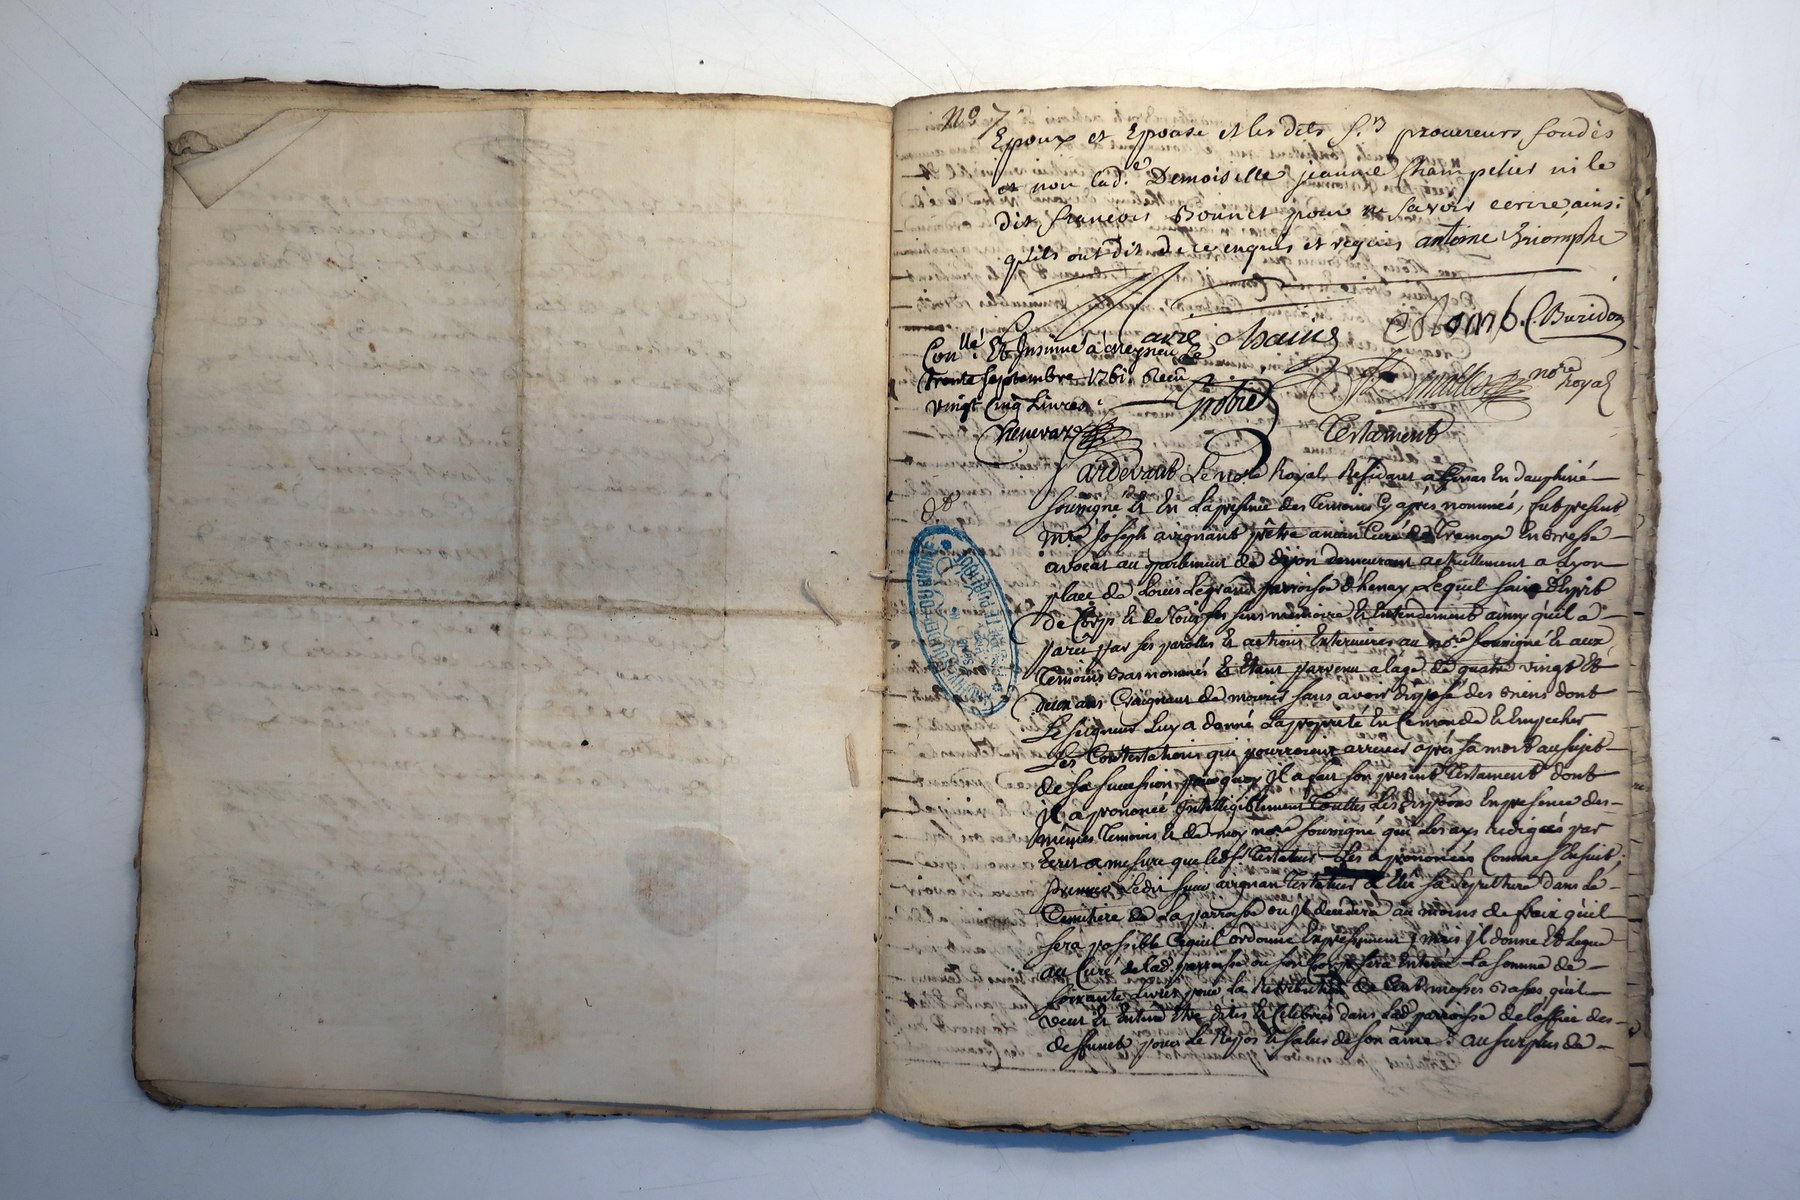 No 7
Epoux et Epouse et les dits s.rs procureurs fondés
et non lad.e Demoiselle jeanne Champelier ni le
dit françois Bonnet pour ne savoir ecrire ainsi
qu'ils ont dit de ce enquis et requis antoine Triomphe
Colomb. C. Buridon
Con.llé Et Insinué à le
trente septembre 1761. Recu
vingt Cinq Livres.
not.re Royal
Testament
Pardevant Le no.re Royal Residant a En dauphiné
soussigné Et En La presence des Temoins Cy après nommés, fut present
m.re Joseph avignant prêtre ancien Curé de Tremoye En Bresse
avocat au parlement de dijon demeurant actuellement a Lyon
place de Loüis Legrand parroisse d'henay Lequel sain d'Esprit
de Corps Et de Tous ses sens memoire Et Entendement ainsy qu'il a
parû par ses parolles Et actions Exterieures au no.re soussigné Et aux
Temoins bas nommés Et Etant parvenu a lage de quatre vingt Et
deux ans Craignant de mourir sans avoir disposé des biens dont
Le seigneur Luy a donné La proprieté En Ce monde Et Empecher
Les Contestations qui pourroient arriver après sa mort au sujet
de sa succession, pour quoy Il a fait son present Testament dont
Il a prononcé Intelligiblement Touttes Les En presence des
mêmes Temoins Et de moy no.re soussigné qui Les ays redigées par
Ecrit a mesure que led.s.r Testateur Les a prononcées Comme s'Ensuit;
premier Ledit sieur avignan Testateur a Elû sa sepulture dans Le
Cemitiere de La parroisse ou Il decedera au moins de fraix qu'il
sera possible Ce qu'il ordonne Expressement; mais Il donne Et Legue
au Curé de lad. parroisse ou son Corps sera Enterré La somme de
soixante Livres pour La Retribution de Cent messes basses qu'il
veut Et Entend Etre dites Et Celebrées dans lad. parroisse de l'office des
deffunct pour Le Repos Et salut de son ame: au surplus de